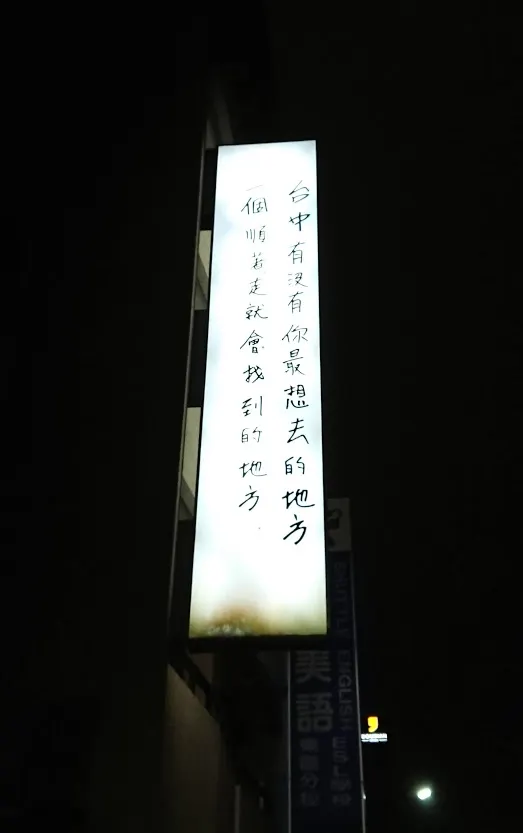 台中有沒有你最想去的地方
一個順著走就會找到的地方
美語
ENGLISH ESL學校